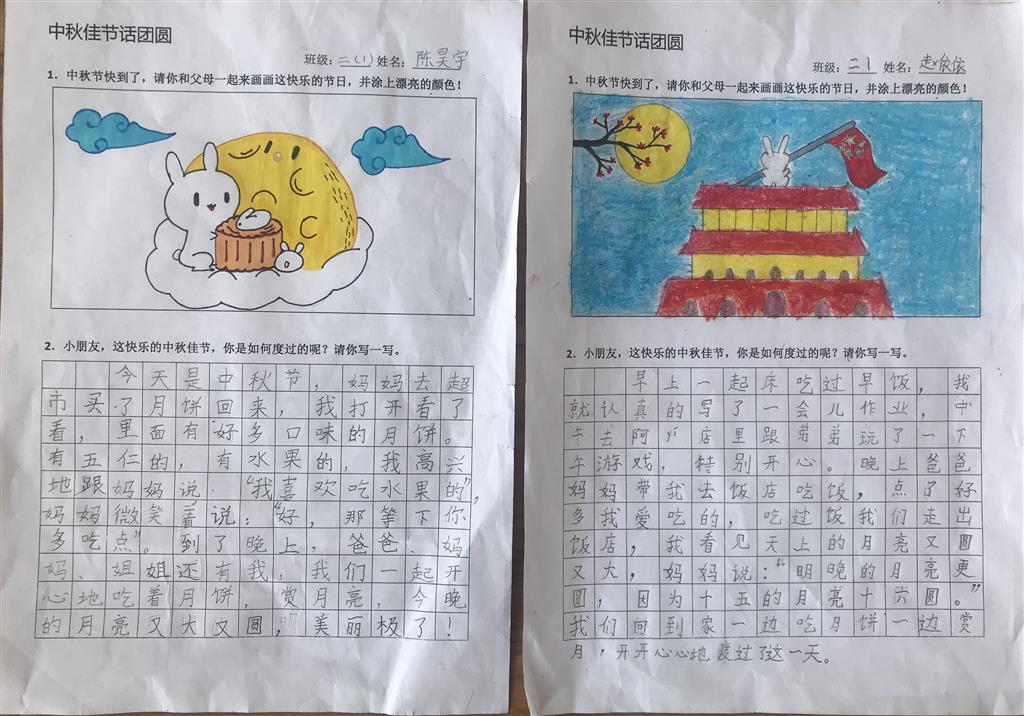 中秋佳节话团圆
班级：二（1） 姓名：陈昊宇
1. 中秋节快到了，请你和父母一起来画画这快乐的节日，并涂上漂亮的颜色！
2. 小朋友，这快乐的中秋佳节，你是如何度过的呢？请你写一写。
今天是中秋节，妈妈去超
市买了月饼回来，我打开看了
看，里面有好多口味的月饼。
有五仁的，有水果的，我高兴
地跟妈妈说：“我喜欢吃水果的”，
妈妈微笑着说：“好，那等下你
多吃点”。到了晚上，爸爸、妈
妈、姐姐还有我，我们一起开
心地吃着月饼，赏月亮，今晚
的月亮又大又圆，美丽极了！
中秋佳节话团圆
班级：二1 姓名：赵依依
1. 中秋节快到了，请你和父母一起来画画这快乐的节日，并涂上漂亮的颜色！
2. 小朋友，这快乐的中秋佳节，你是如何度过的呢？请你写一写。
早上一起床吃过早饭，我
就认真的写了一会儿作业，中
午去阿炉店里跟弟弟玩了一下
午游戏，特别开心。晚上爸爸
妈妈带我去饭店吃饭，点了好
多我爱吃的，吃过饭我们走出
饭店，我看见天上的月亮又圆
又大，妈妈说：“明晚的月亮更
圆，因为十五的月亮十六圆。”
我们回到家一边吃月饼一边赏
月，开开心心地度过了这一天。